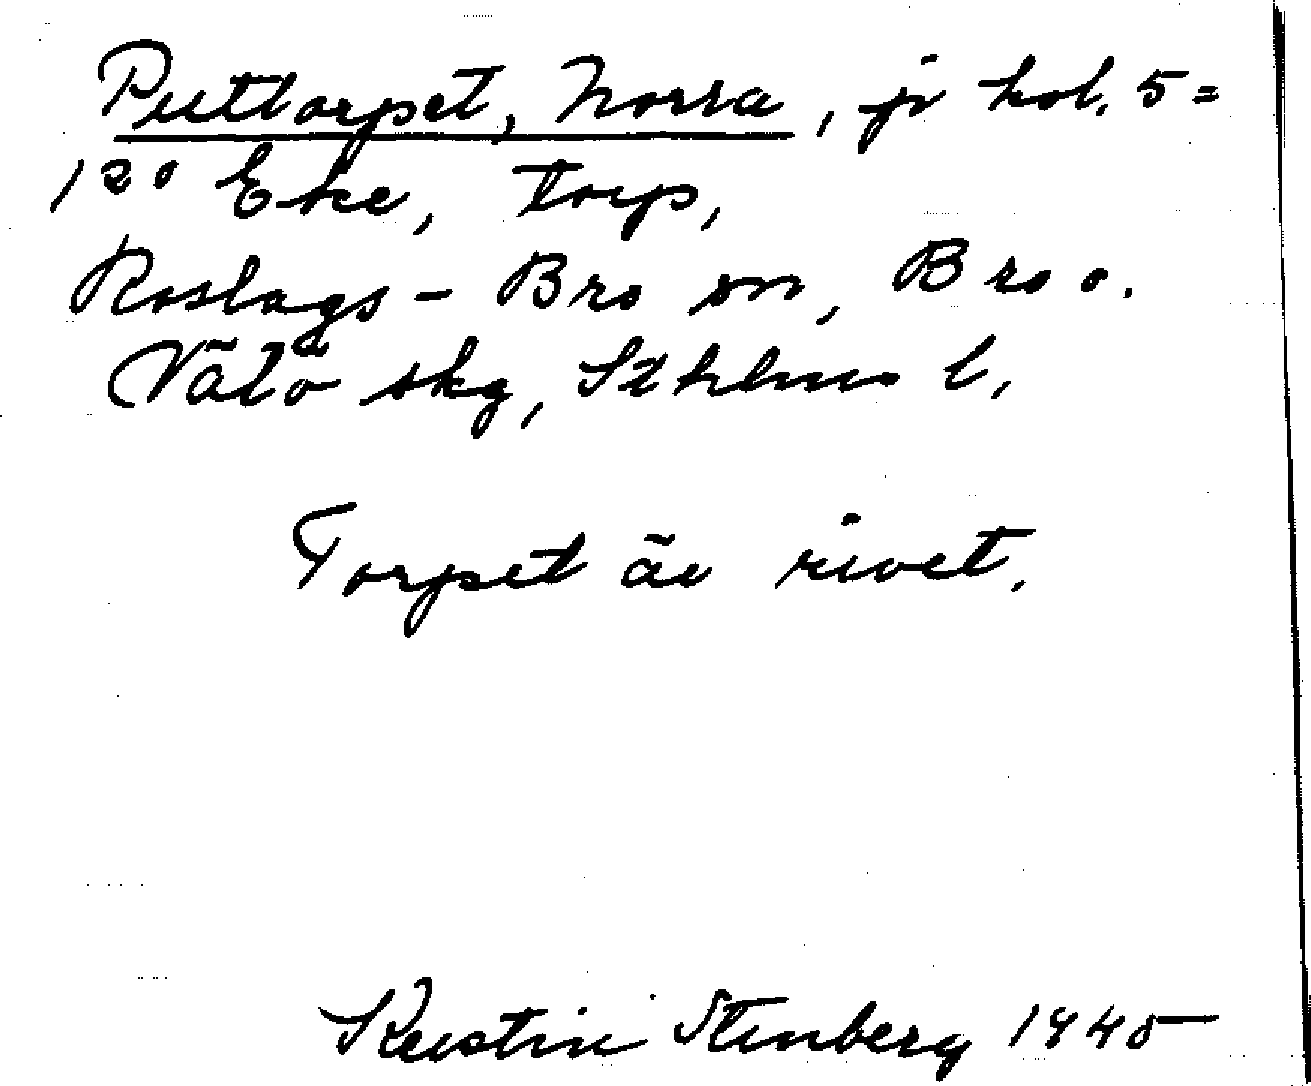 Puttorpet, Norra, jr kol. 5=
120 Eke, torp,
Roslags-Bro sn, Bro o.
Vätö skg, Sthlms l.
Torpet är rivet.
Kerstin Stenberg 1945